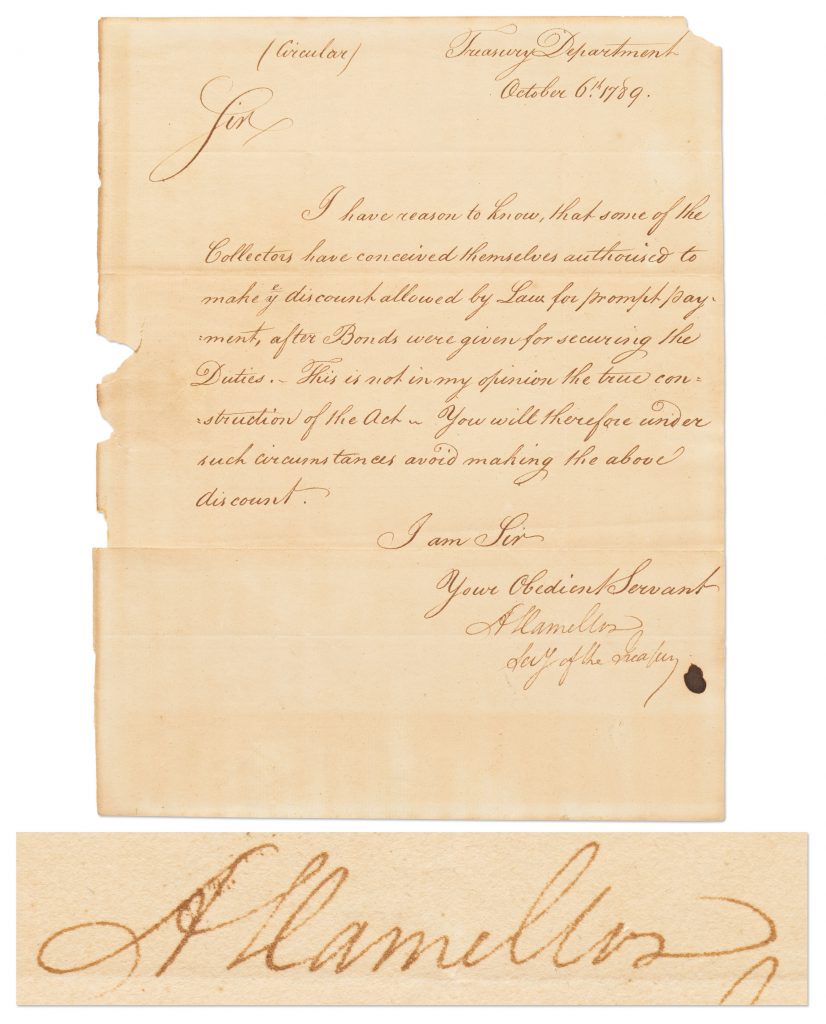 (Circular) Treasury Department
October 6th. 1789.
Sir
I have reason to know, that some of the
Collectors have conceived themselves authorised to
make ye discount allowed by Law for prompt pay-
-ment, after Bonds were given for securing the
Duties. - This is not in my opinion the true con-
-struction of the Act - You will therefore under
such circumstances avoid making the above
discount.
I am Sir
Your Obedient Servant
A Hamilton
Secy of the Treasury
A Hamilton